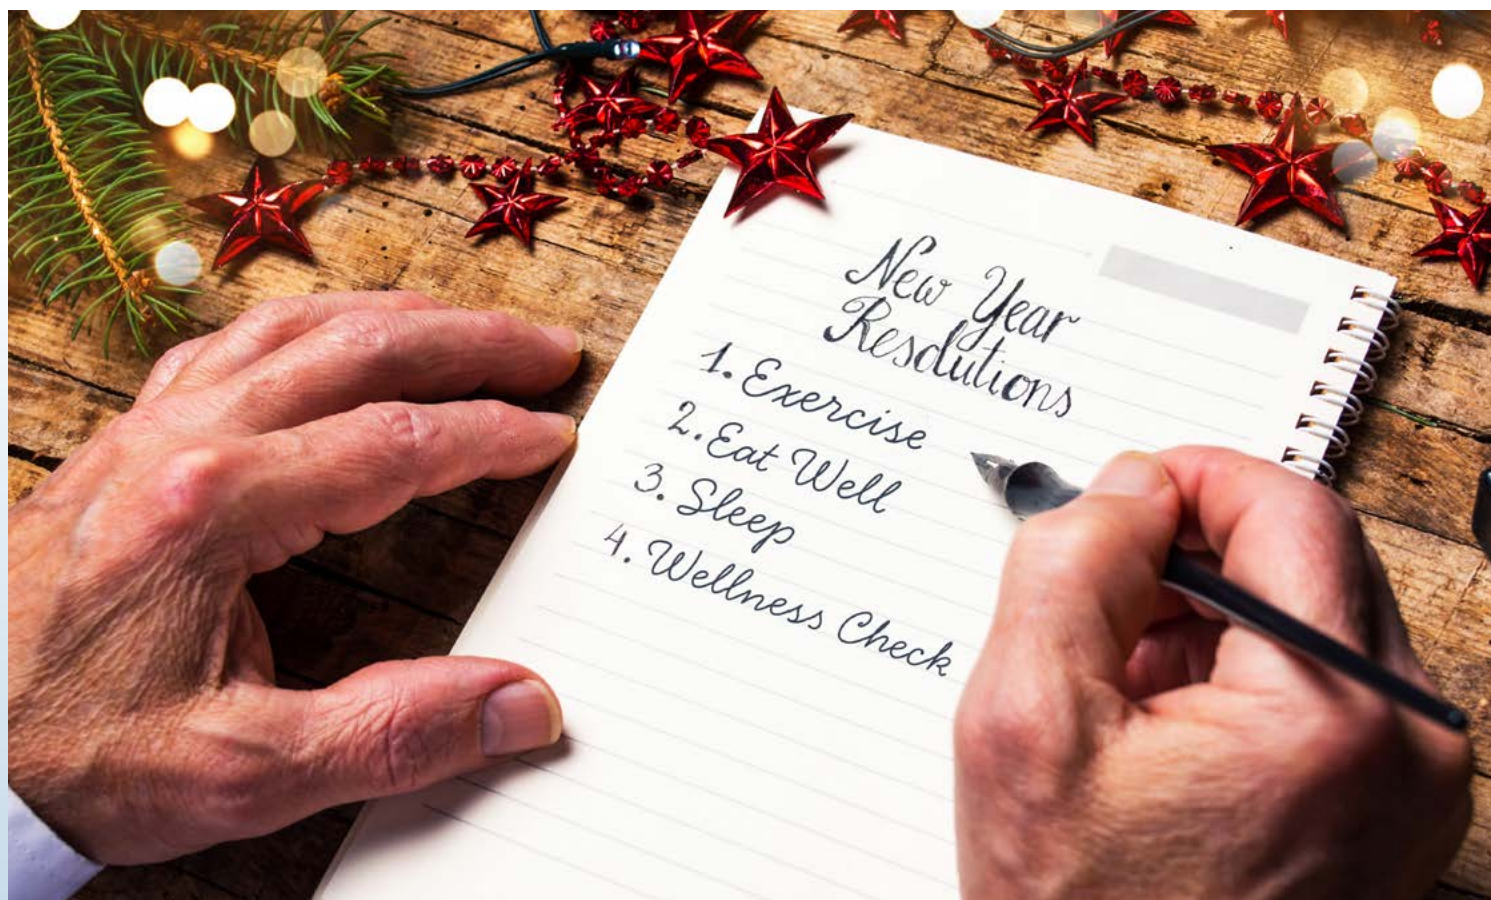 New Year
Resolutions
1. Exercise
2. Eat Well
3. Sleep
4. Wellness Check